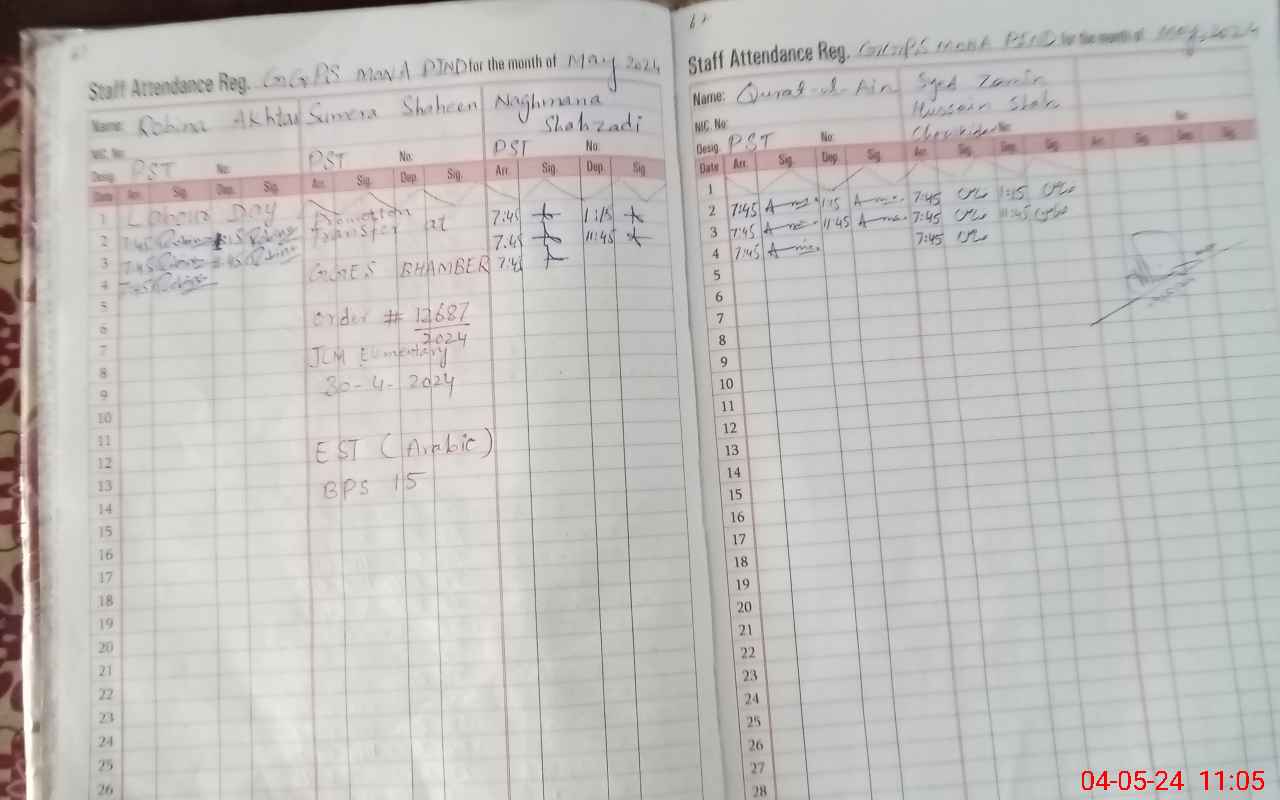 Staff Attendance Reg. GGPS MONA PIND for the month of May 2024
Name: Robina Akhtar Sumera Shaheen Naghmana
Shahzadi
NIC. No
Desig. PST No: PST No: PST No:
Date Arr. Sig. Dep. Sig. Arr. Sig. Dep. Sig. Arr. Sig. Dep. Sig
1 Labour Day Promotion 7:45 1:15
2 7:45 Robina 1:15 Robina transfer at 7:45 11:45
3 7:45 Robina 11:45 Robina GGES BHAMBER 7:45
4 7:45 Robina
5 Order # 12687
6 2024
7 Elementary
8 30-4-2024
9
10
11 EST (Arabic)
12
13 BPS 15
14
15
16
17
18
19
20
21
22
23
24
25
26
62
Staff Attendance Reg. GGPS MONA PIND for the month of May, 2024
Name: Qurat-ul-Ain Syed Zamin
Hussain Shah
NIC. No: No:
Desig. PST No: Chowkidar No:
Date Arr. Sig. Dep. Sig. Arr. Sig. Dep. Sig. Arr. Sig. Dep. Sig.
1
2 7:45 1:15 7:45 1:15
3 7:45 11:45 7:45 11:45
4 7:45 7:45
5
6
7
8
9
10
11
12
13
14
15
16
17
18
19
20
21
22
23
24
25
26
27
28
04-05-24 11:05